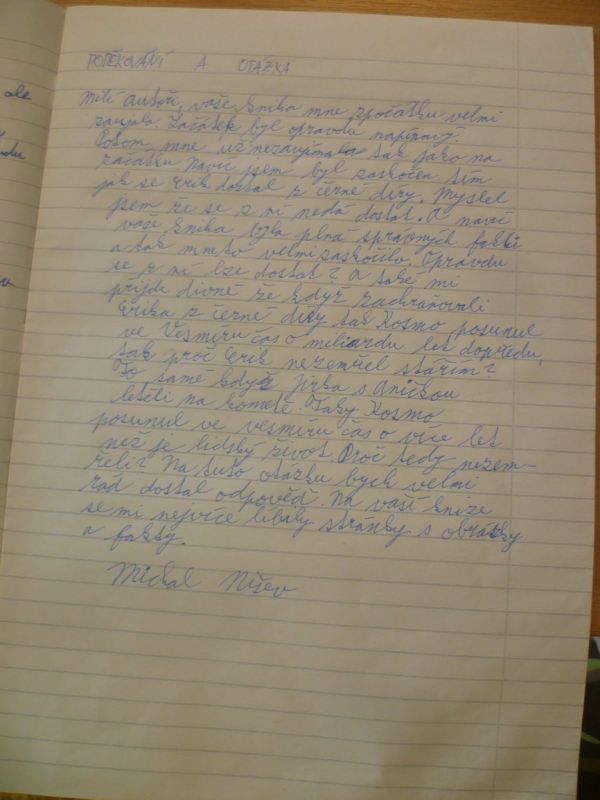 ale
PODĚKOVÁNÍ A OTÁZKA
Milí autoři, vaše kniha mne zpočátku velmi
zaujala. Začátek byl opravdu napínavý.
Potom mne už nezaujímala tak jako na
začátku. Navíc jsem byl zaskočen tím
jak se Erik dostal z černé díry. Myslel
jsem že se z ní nedá dostat. A navíc
vaše kniha byla plná správných faktů
a tak mne to velmi zaskočilo. Opravdu
se z ní lze dostat? A také mi
přijde divné že když zachraňovali
Erika z černé díry tak Kosmo posunul
ve Vesmíru čas o miliardu let dopředu,
tak proč Erik nezemřel stářím?
To samé když Jirka s Aničkou
letěli na kometě. Taky Kosmo
posunul ve vesmíru čas o více let
než je lidský život. Proč tedy nezem-
řeli? Na tuto otázku bych velmi
rád dostal odpověď. Na vaší knize
se mi nejvíce líbily stránky s obrázky
a fakty.
Michal